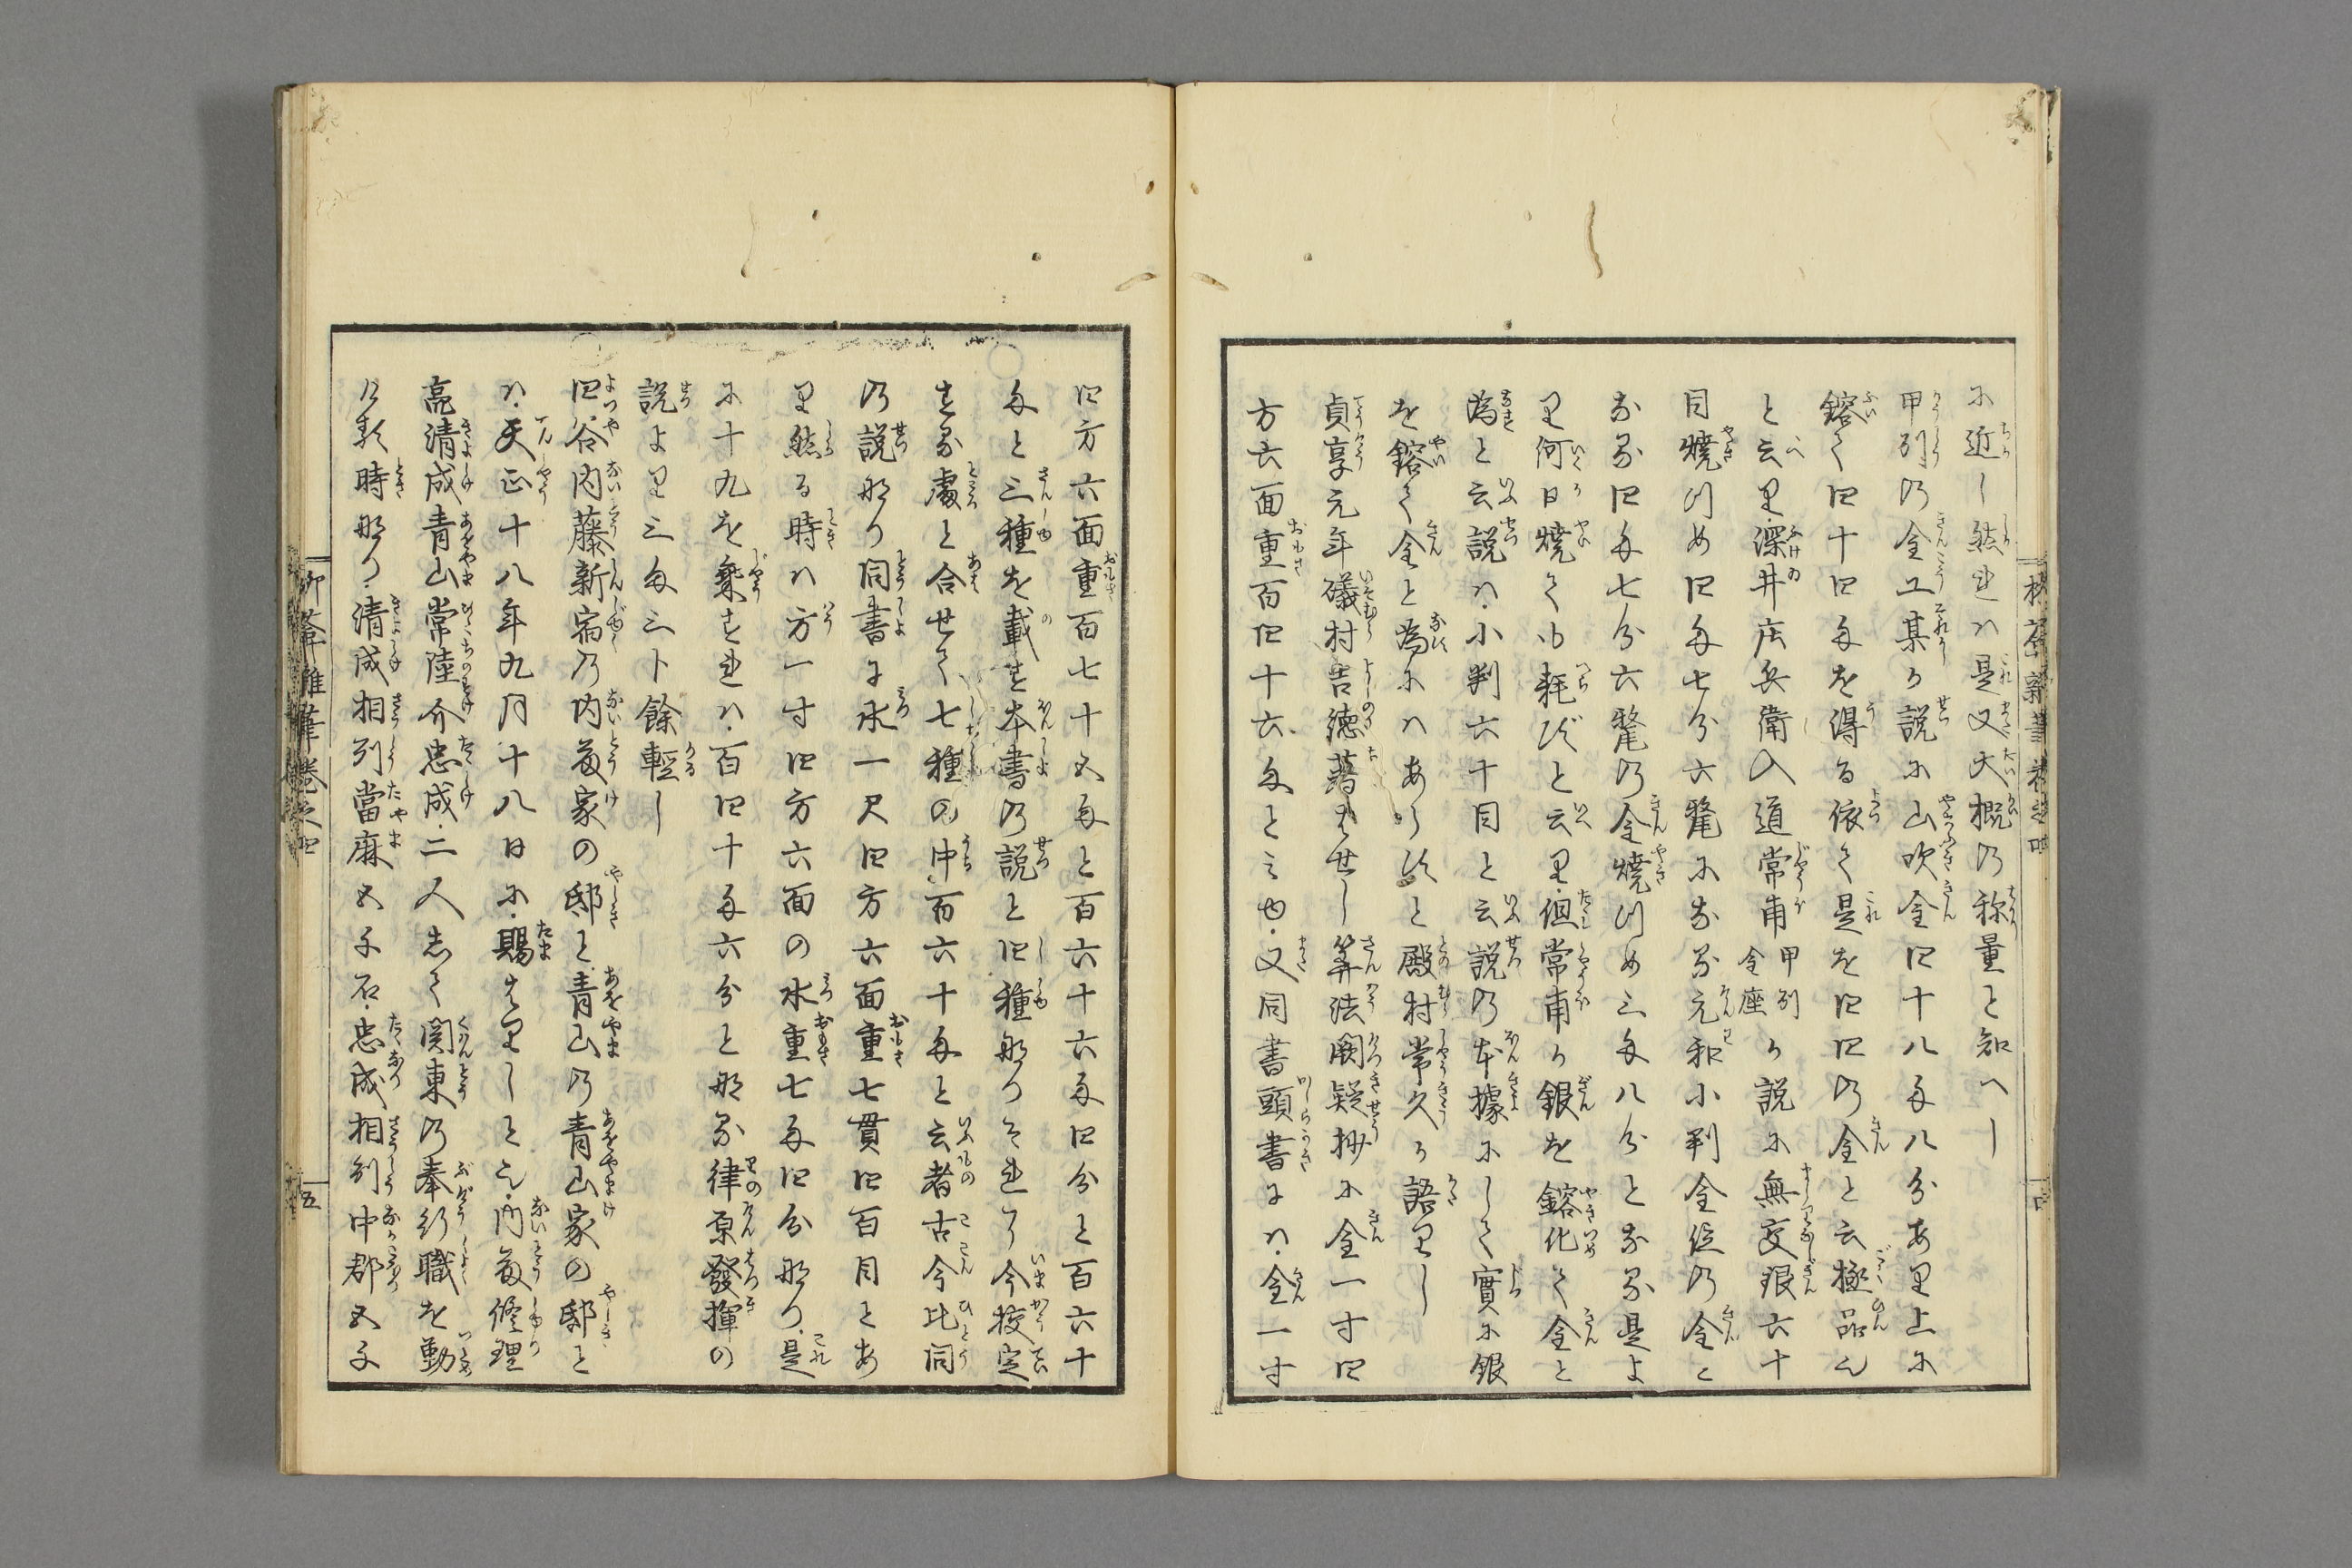 に近し然れハ是又大概乃称量と知へし
甲州乃金工某か説に山吹金四十八匁八分あり上に
鎔て四十四匁を得る依て是を四四乃金と云極品也
と云り深井庄兵衛入道常甫甲州金座か説に無交銀六十
目焼つめ四匁七分六氂になる元和小判金位乃金と
なる四匁七分六氂乃金焼つめ三匁八分となる是よ
り何日焼ても耗びずと云り但常甫か銀を鎔化て金と
為と云説ハ小判六十目と云説乃本據にして實に銀
を鎔て金と為にハあらすと殿村常久か語りし
貞享元年礒村吉徳著はせし筭法闕疑抄に金一寸四
方六面重百四十六匁とミゆ又同書頭書にハ金一寸
四方六面重百七十五匁と百六十六匁四分と百六十
匁と三種を載す本書乃説と四種なりそれり今挍定
する處と合せて七種の中百六十匁と云者古今比同
乃説なり同書に水一尺四方六面重七貫四百目とあ
り然る時ハ方一寸四方六面の水重七匁四分なり是
に十九を乗すれハ百四十匁六分となる律原發揮の
説より三匁三卜餘輕し
四谷内藤新宿乃内藤家の邸と青山乃青山家の邸と
ハ天正十八年九月十八日に賜はりしと也内藤修理
亮清成青山常陸介忠成二人して関東乃奉行職を勤
けれ時なり清成相州當麻五千石忠成相州中郡五千
巻之四
五